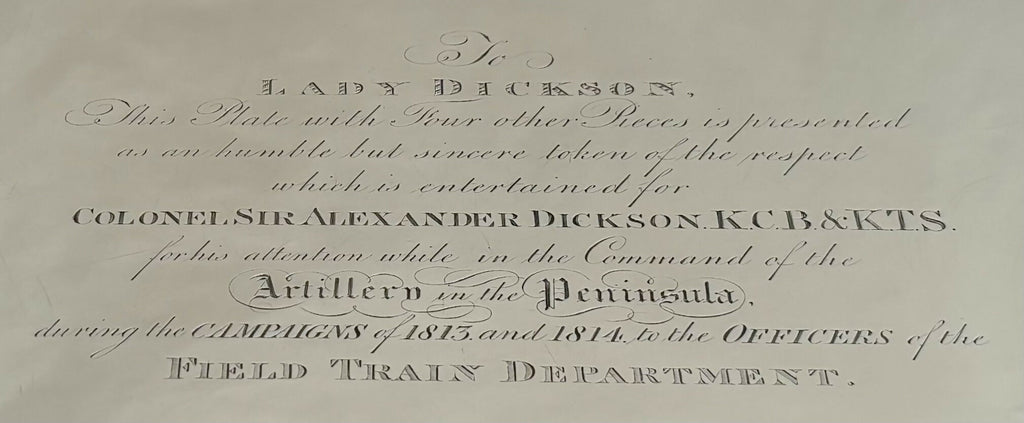 To
LADY DICKSON,
This Plate with Four other Pieces is presented
as an humble but sincere token of the respect
which is entertained for
COLONEL SIR ALEXANDER DICKSON. K.C.B. & K.T.S.
for his attention while in the Command of the
Artillery in the Peninsula,
during the CAMPAIGNS of 1813. and 1814. to the OFFICERS of the
FIELD TRAIN DEPARTMENT.